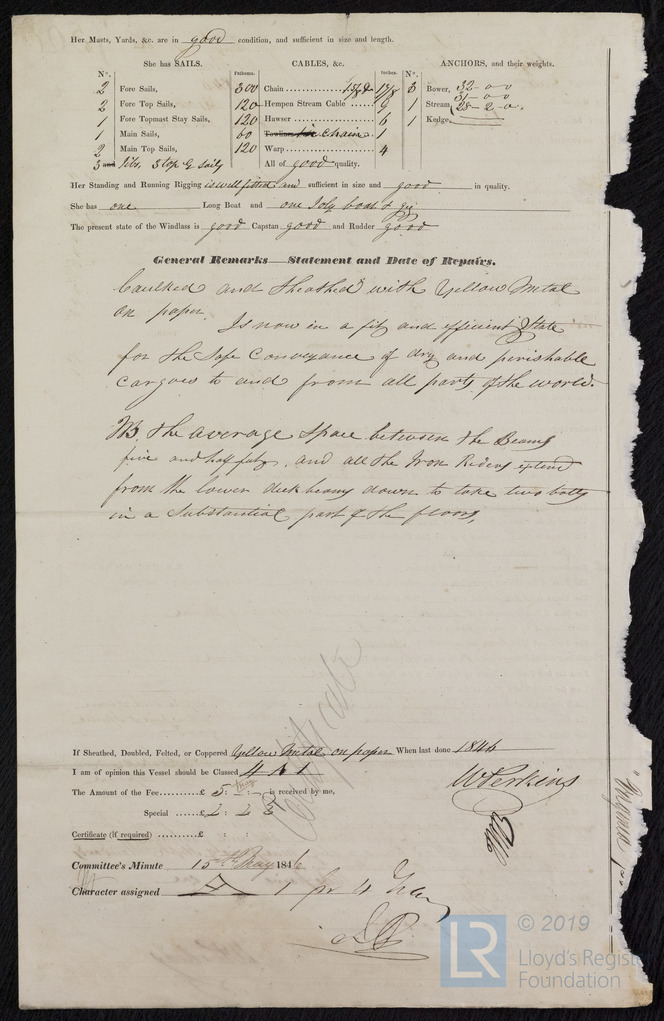 Her Masts, Yards, &c. are in good condition, and sufficient in size and length.
She has SAILS. CABLES, &c. ANCHORS, and their weights.
N°. Fathoms. Inches. N°.
2 Fore Sails, Chain 300 1 5/8 3 Bower, 32-0-0
31-0-0
2 Fore Top Sails, Hempen Stream Cable 120 9 1 Stream, 28-2-0
1 Fore Topmast Stay Sails, Hawser 120 6 1 Kedge
1 Main Sails, Towlines chain 60 1
2 Main Top Sails, Warp 120 4
3 Jibs, 3 top G Sails All of good quality.
Her Standing and Running Rigging is well fitted and sufficient in size and good in quality.
She has one Long Boat and one Joly boat & gig
The present state of the Windlass is good Capstan good and Rudder good
General Remarks—Statement and Date of Repairs.
Caulked and Sheathed with Yellow Metal
on paper. Is now in a fit and efficient State
for the Safe Conveyance of dry and perishable
cargoes to and from all parts of the world.
NB. The average Space between the Beams
five and half feet, and all the Iron Riders extend
from the lower deck beams down to take two bolts
in a Substantial part of the floors,
Certificate
If Sheathed, Doubled, Felted, or Coppered Yellow Metal on paper When last done 1846
I am of opinion this Vessel should be Classed 4 A 1
The Amount of the Fee £ 5 : - : - is received by me,
W Perkins
Special £ 2 : 2 :
Certificate (if required) £ : :
Committee's Minute 15th May 1846
Character assigned A 1 for 4 Years
© 2019
LR
Lloyd's Register
Foundation